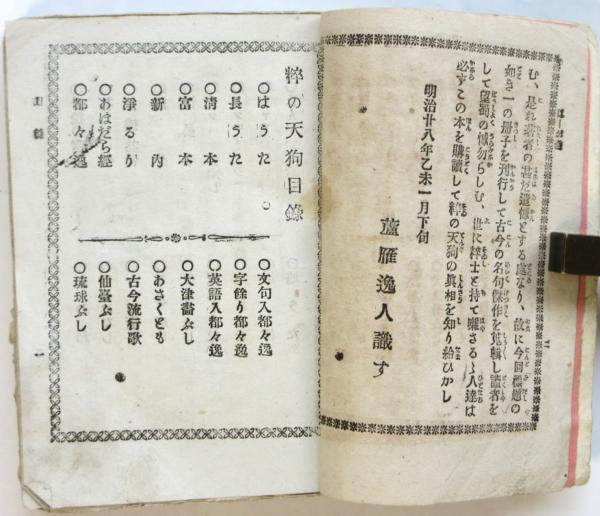 む、是れ著者の甚だ遺憾とする處なり、故に今回標題の
如き一の冊子を刊行して古今の名句傑作を蒐輯し讀者を
して望蜀の憾勿らしむ、世に粹士と持て囃さるゝ人達は
必ずこの本を購讀して粹の天狗の眞相を知り給ひかし
明治廿八年乙未一月下旬
蘆雁逸人識す
粹の天狗目錄
○はうた
○長うた
○清本
○富本
○新内
○淨るり
○あほだら經
○都々逸
○文句入都々逸
○字餘り都々逸
○英語入都々逸
○大津畵ぶし
○あさくとも
○古今流行歌
○仙臺ぶし
○琉球ぶし
目錄
一